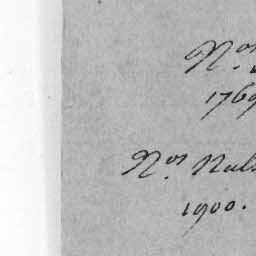 Nos.
176
Nos. Nul
1900.